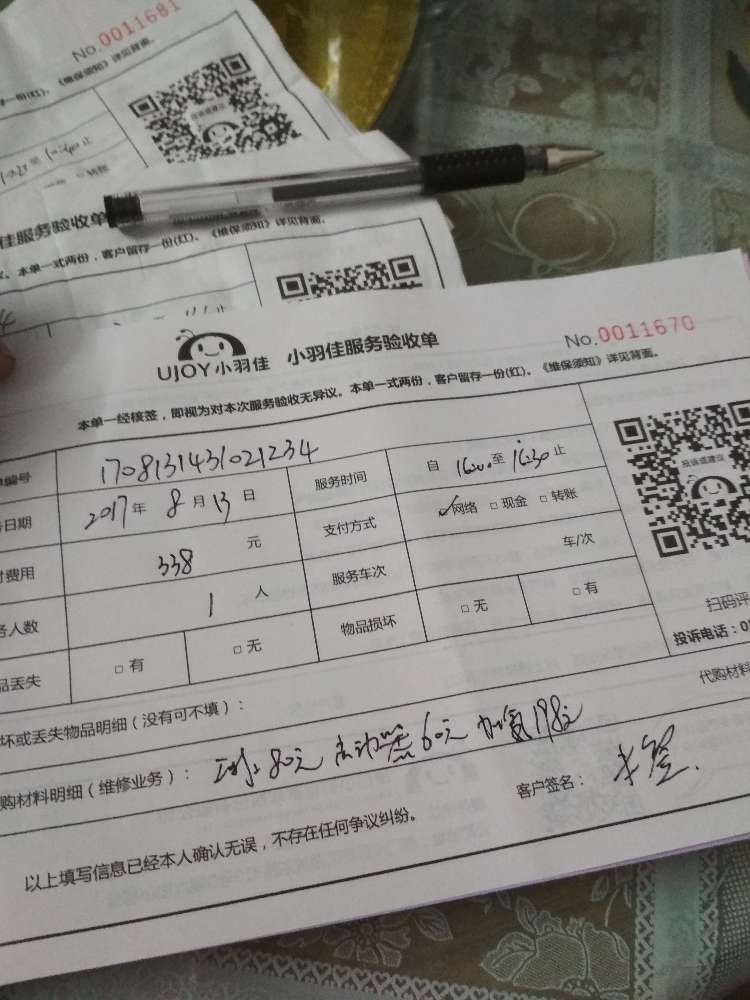 No.0011681
一份(红)，《维保须知》详见背面。
投诉或建议
转账
佳服务验收单
本单一式两份，客户留存一份(红)。《维保须知》详见背面。
UJOY小羽佳 小羽佳服务验收单 No.0011670
本单一经核签，即视为对本次服务验收无异议。本单一式两份，客户留存一份(红)。《维保须知》详见背面。
编号 1708131431021234 服务时间 自 至 16:30 止
日期 2017年8月13日 支付方式 网络 □现金 □转账
费用 338 元 服务车次 车/次
人数 1 人 物品损坏 □无 □有
丢失 □有 □无
投诉或建议
扫码评
投诉电话：0
坏或丢失物品明细（没有可不填）： 代购材料
购材料明细（维修业务）： 80元 60元 加氟198元
客户签名：
以上填写信息已经本人确认无误，不存在任何争议纠纷。